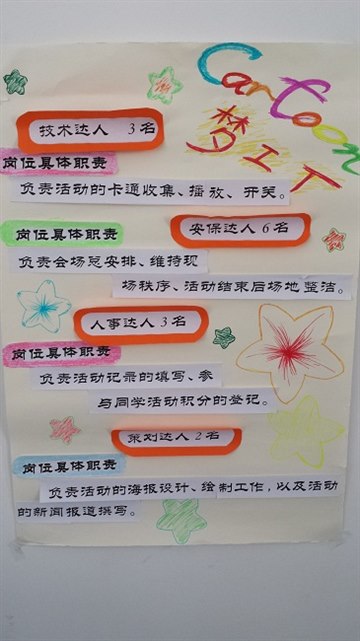 Cartoon
梦工厂
技术达人 3名
岗位具体职责
负责活动的卡通收集、播放、开关。
安保达人6名
岗位具体职责
负责会场总安排、维持现
场秩序、活动结束后场地整洁。
人事达人3名
岗位具体职责
负责活动记录的填写、参
与同学活动积分的登记。
策划达人2名
岗位具体职责
负责活动的海报设计、绘制工作，以及活动
的新闻报道撰写。